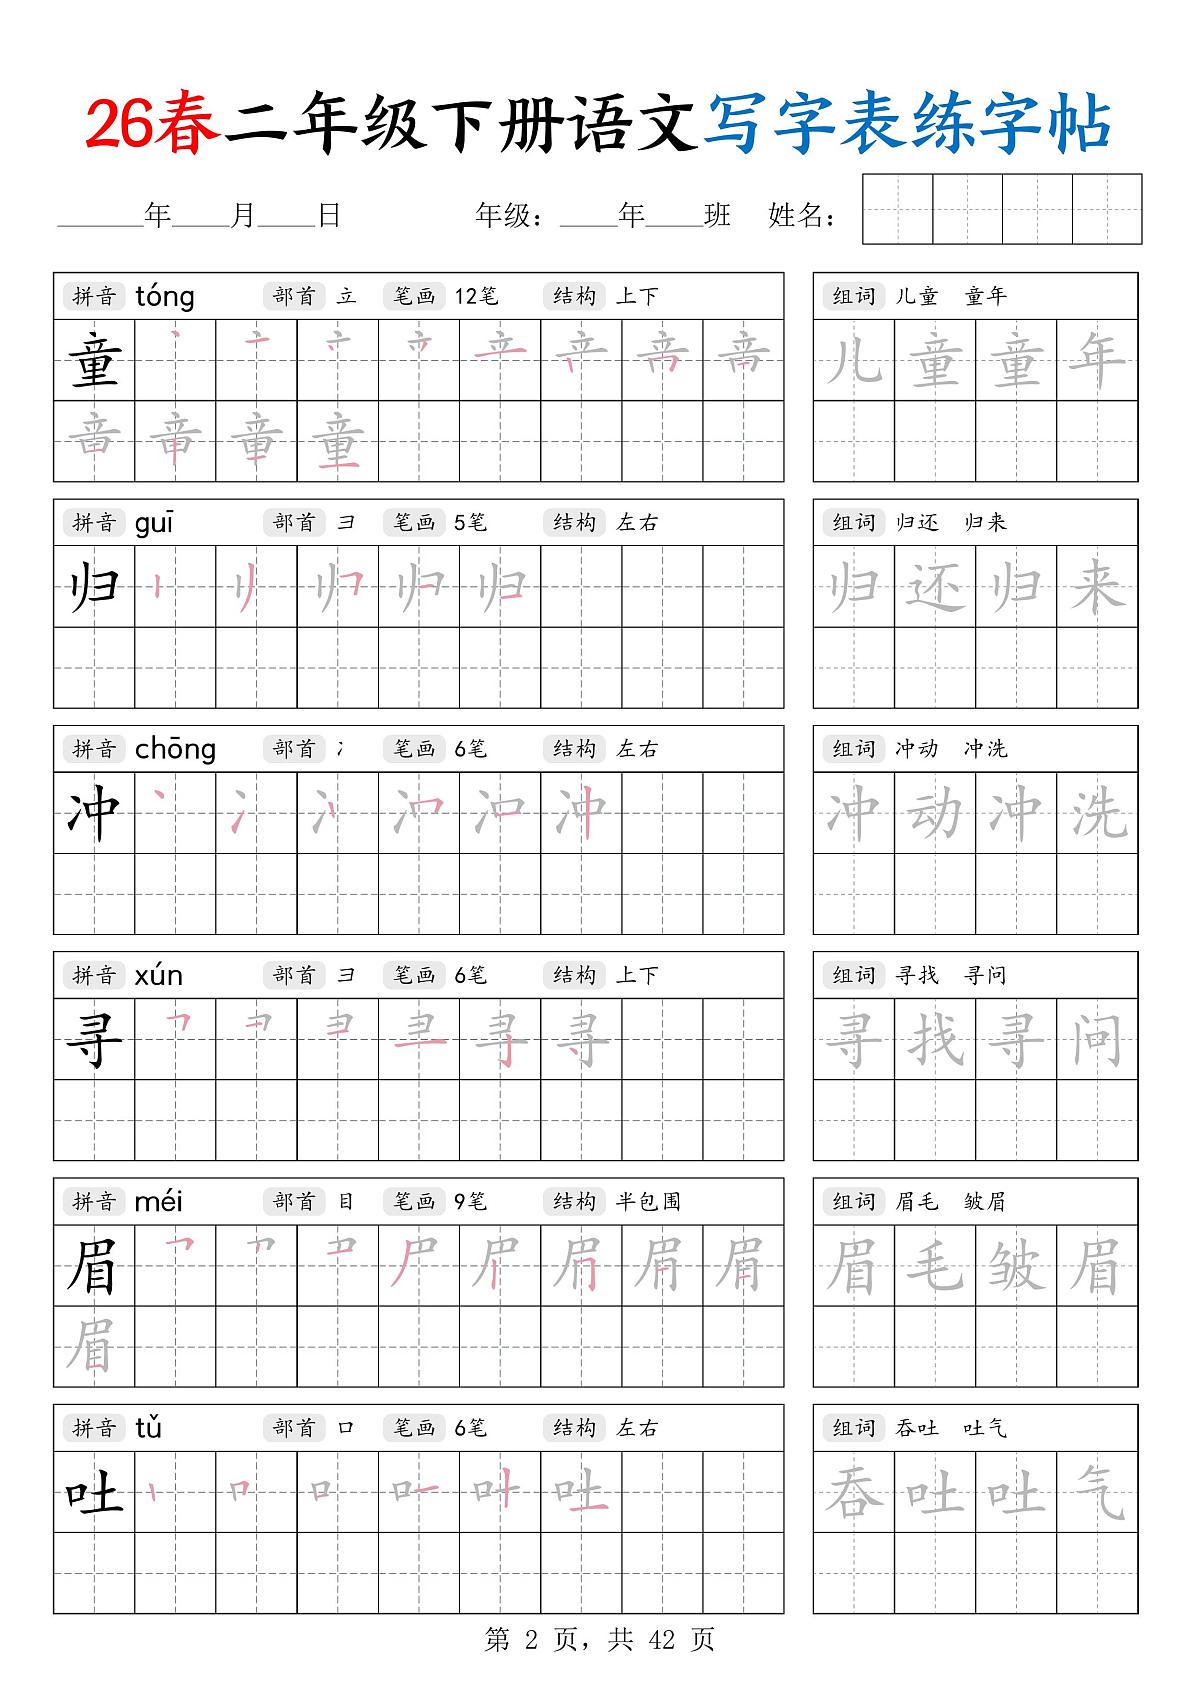 26春二年级下册语文写字表练字帖
____年____月____日 年级：____年____班 姓名：
拼音 tóng 部首 立 笔画 12笔 结构 上下 组词 儿童 童年
童 儿童童年
童
拼音 guī 部首 彐 笔画 5笔 结构 左右 组词 归还 归来
归 归还归来
拼音 chōng 部首 冫 笔画 6笔 结构 左右 组词 冲动 冲洗
冲 冲动冲洗
拼音 xún 部首 彐 笔画 6笔 结构 上下 组词 寻找 寻问
寻 寻找寻问
拼音 méi 部首 目 笔画 9笔 结构 半包围 组词 眉毛 皱眉
眉 眉毛皱眉
眉
拼音 tǔ 部首 口 笔画 6笔 结构 左右 组词 吞吐 吐气
吐 吞吐吐气
第 2 页，共 42 页